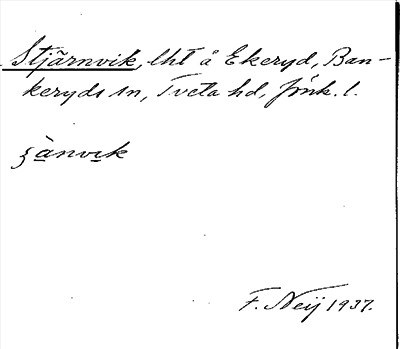 Stjärnvik, lht å Ekeryd, Ban-
keryds sn, Tveta hd, Jönk. l.
ʂä̀nvik
F. Neij 1937.